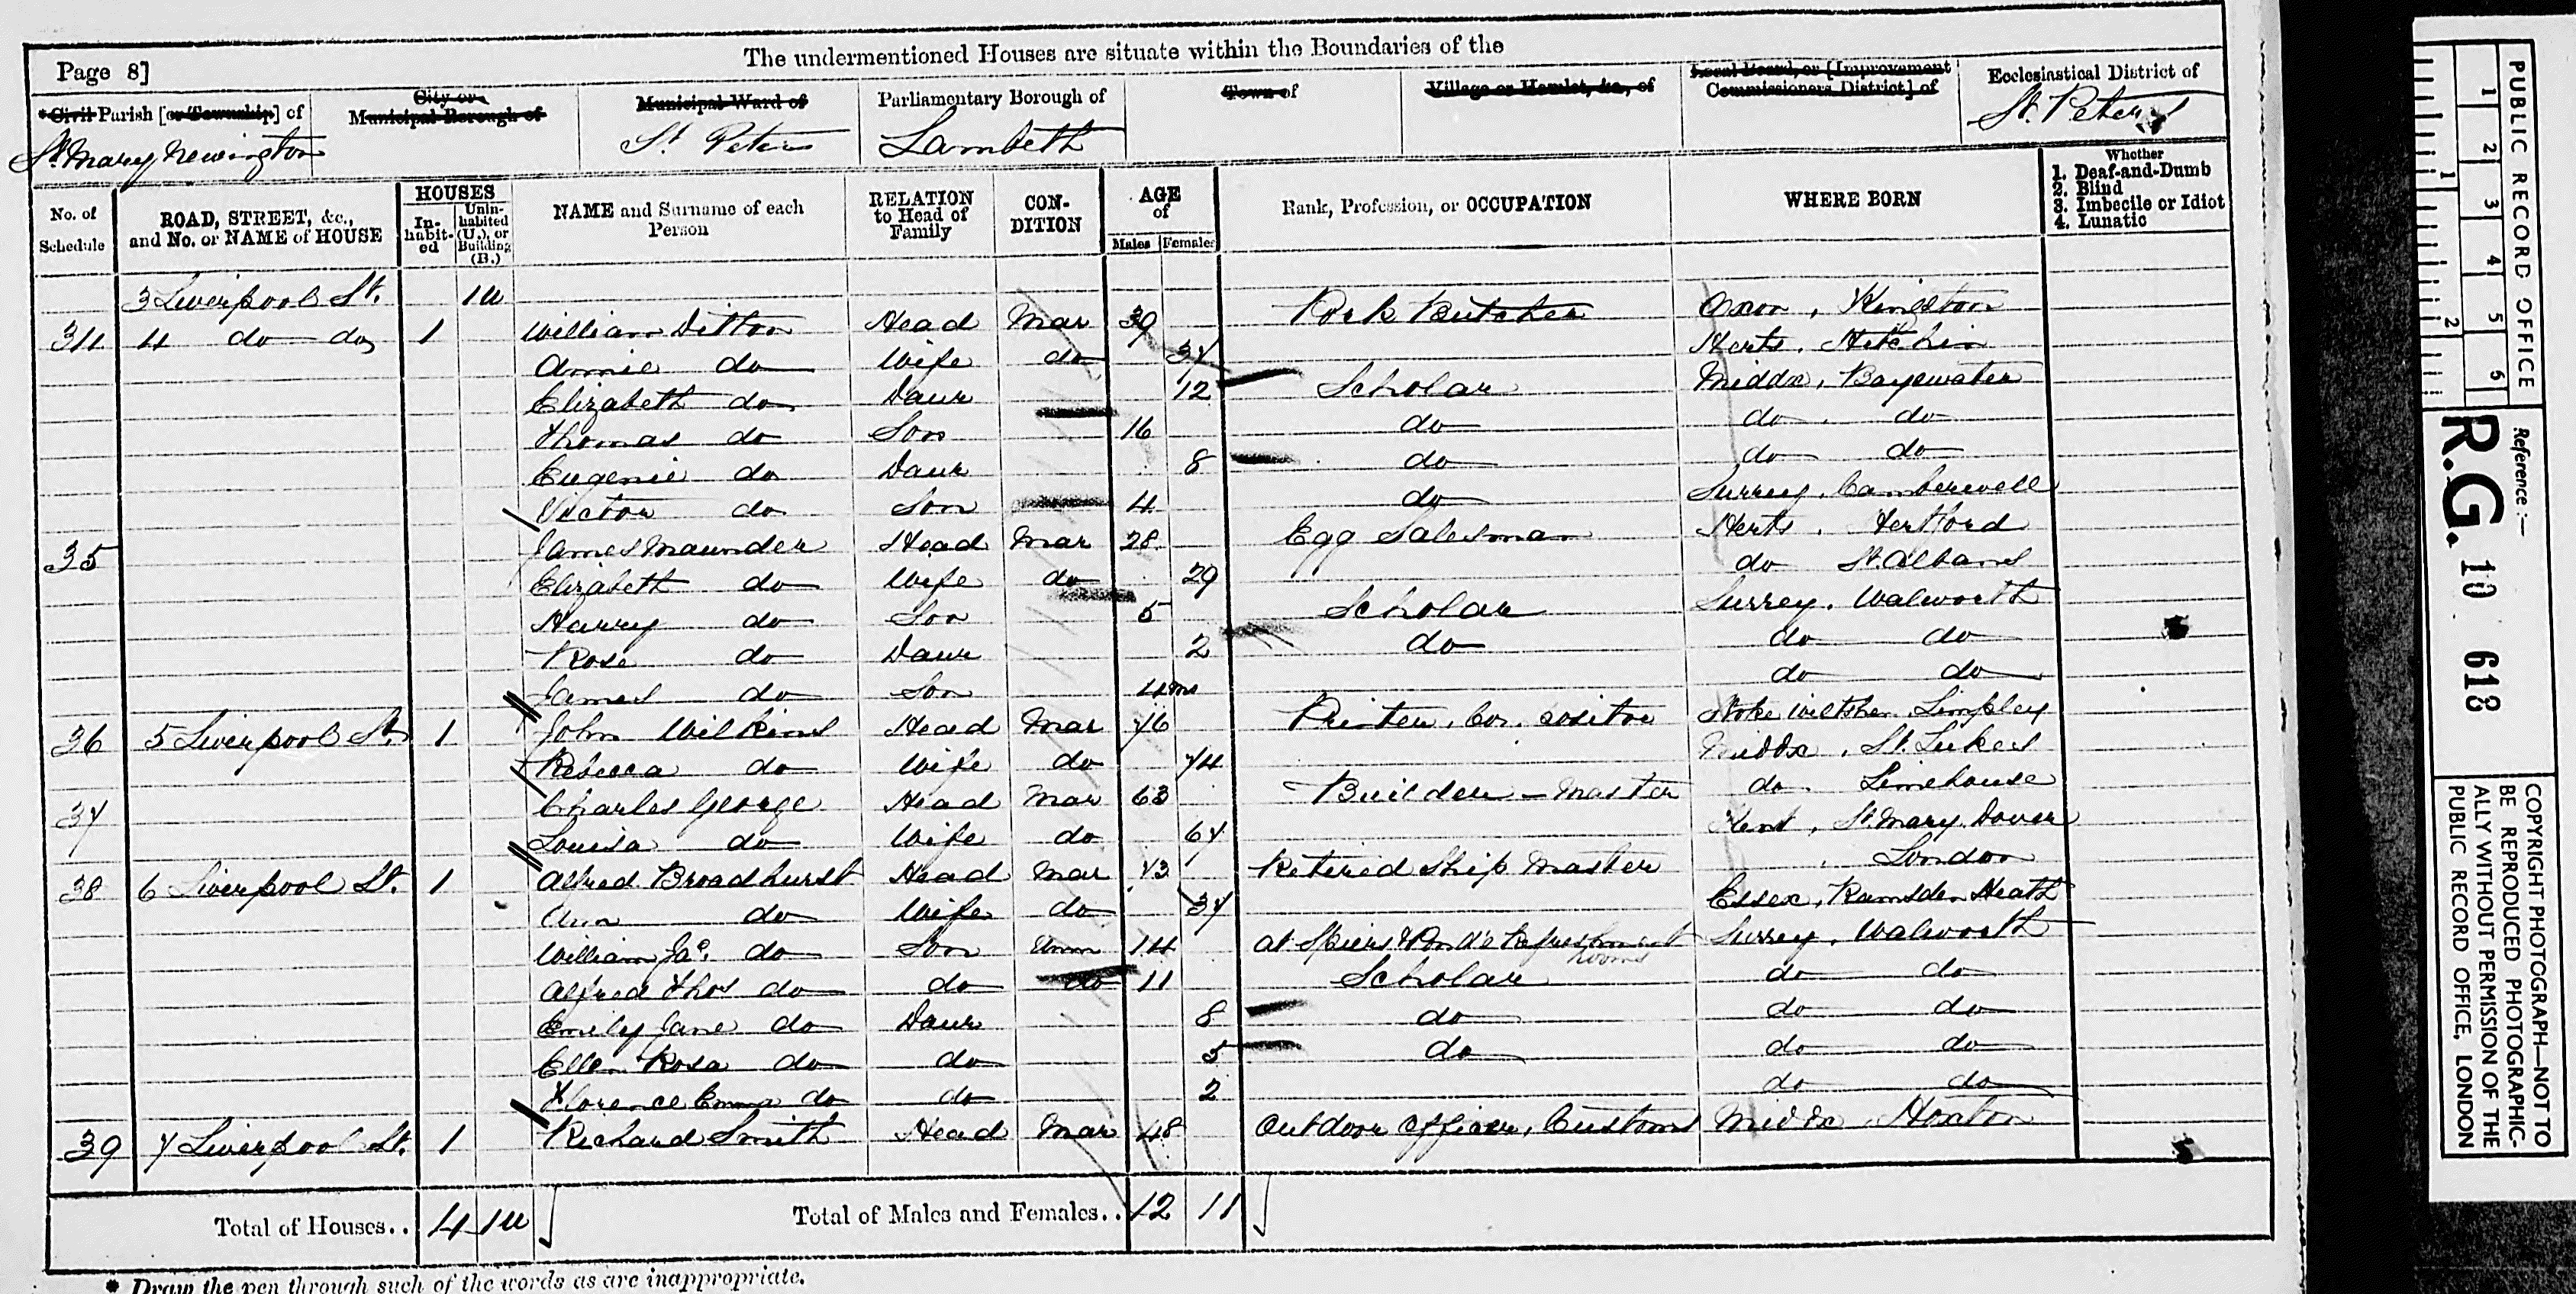 The undermentioned Houses are situate within the Boundaries of the
Page 8]
*Civil Parish [or Township] of
City or Municipal Borough of
Municipal Ward of
Parliamentary Borough of
Town of
Village or Hamlet, &c., of
Local Board, or [Improvement Commissioners District] of
Ecclesiastical District of
St Mary Newington
St Peters
Lambeth
St. Peters
No. of Schedule
ROAD, STREET, &c., and No. or NAME of HOUSE
HOUSES
In-habit-ed
Unin-habited (U.), or Building (B.)
NAME and Surname of each Person
RELATION to Head of Family
CON-DITION
AGE of
Males
Females
Rank, Profession, or OCCUPATION
WHERE BORN
Whether
1. Deaf-and-Dumb
2. Blind
3. Imbecile or Idiot
4. Lunatic
3 Liverpool St. 1u
34 4 do do 1 William Ditton Head Mar 39 Pork Butcher Oxon, Kingston
Annie do Wife do 37 Herts, Hitchin
Elizabeth do Daur 12 Scholar Middx, Bayswater
Thomas do Son 16 do do do
Eugenie do Daur 8 do do do
Victor do Son 4 do Surrey, Camberwell
35 James Maunder Head Mar 28 Egg Salesman Herts, Hertford
Elizabeth do Wife do 29 do St. Albans
Harry do Son 5 Scholar Surrey, Walworth
Rose do Daur 2 do do do
James do Son 4ms do do
36 5 Liverpool St. 1 John Wilkins Head Mar 76 Printer, Stoke Wiltsher, Limpley
Rebecca do Wife do 74 Middx, St. Lukes
37 Charles George Head Mar 63 Builder - Master do Limehouse
Louisa do Wife do 67 Kent, St. Mary Dover
38 6 Liverpool St. 1 Alfred Broadhurst Head Mar 43 Retired Ship Master London
Ann do Wife do 37 Essex, Ramsden Heath
William Jas. do Son Unm 14 at Spiers & Pond's Refreshment rooms Surrey, Walworth
Alfred Thos do do do 11 Scholar do do
Emily Jane do Daur 8 do do do
Ellen Rosa do do 5 do do do
Florence Emma do do 2 do do
39 7 Liverpool St. 1 Richard Smith Head Mar 48 Outdoor Officer, Customs Middx, Hoxton
Total of Houses.. 4 1u
Total of Males and Females.. 12 11
* Draw the pen through such of the words as are inappropriate.
1 2 3 4 5 6
1 2
PUBLIC RECORD OFFICE
Reference:—
R.G. 10 618
COPYRIGHT PHOTOGRAPH—NOT TO
BE REPRODUCED PHOTOGRAPHIC-
ALLY WITHOUT PERMISSION OF THE
PUBLIC RECORD OFFICE, LONDON